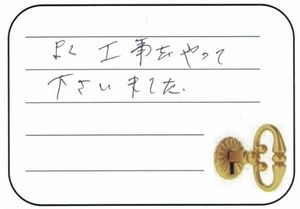 よく工事をやって
下さいました.